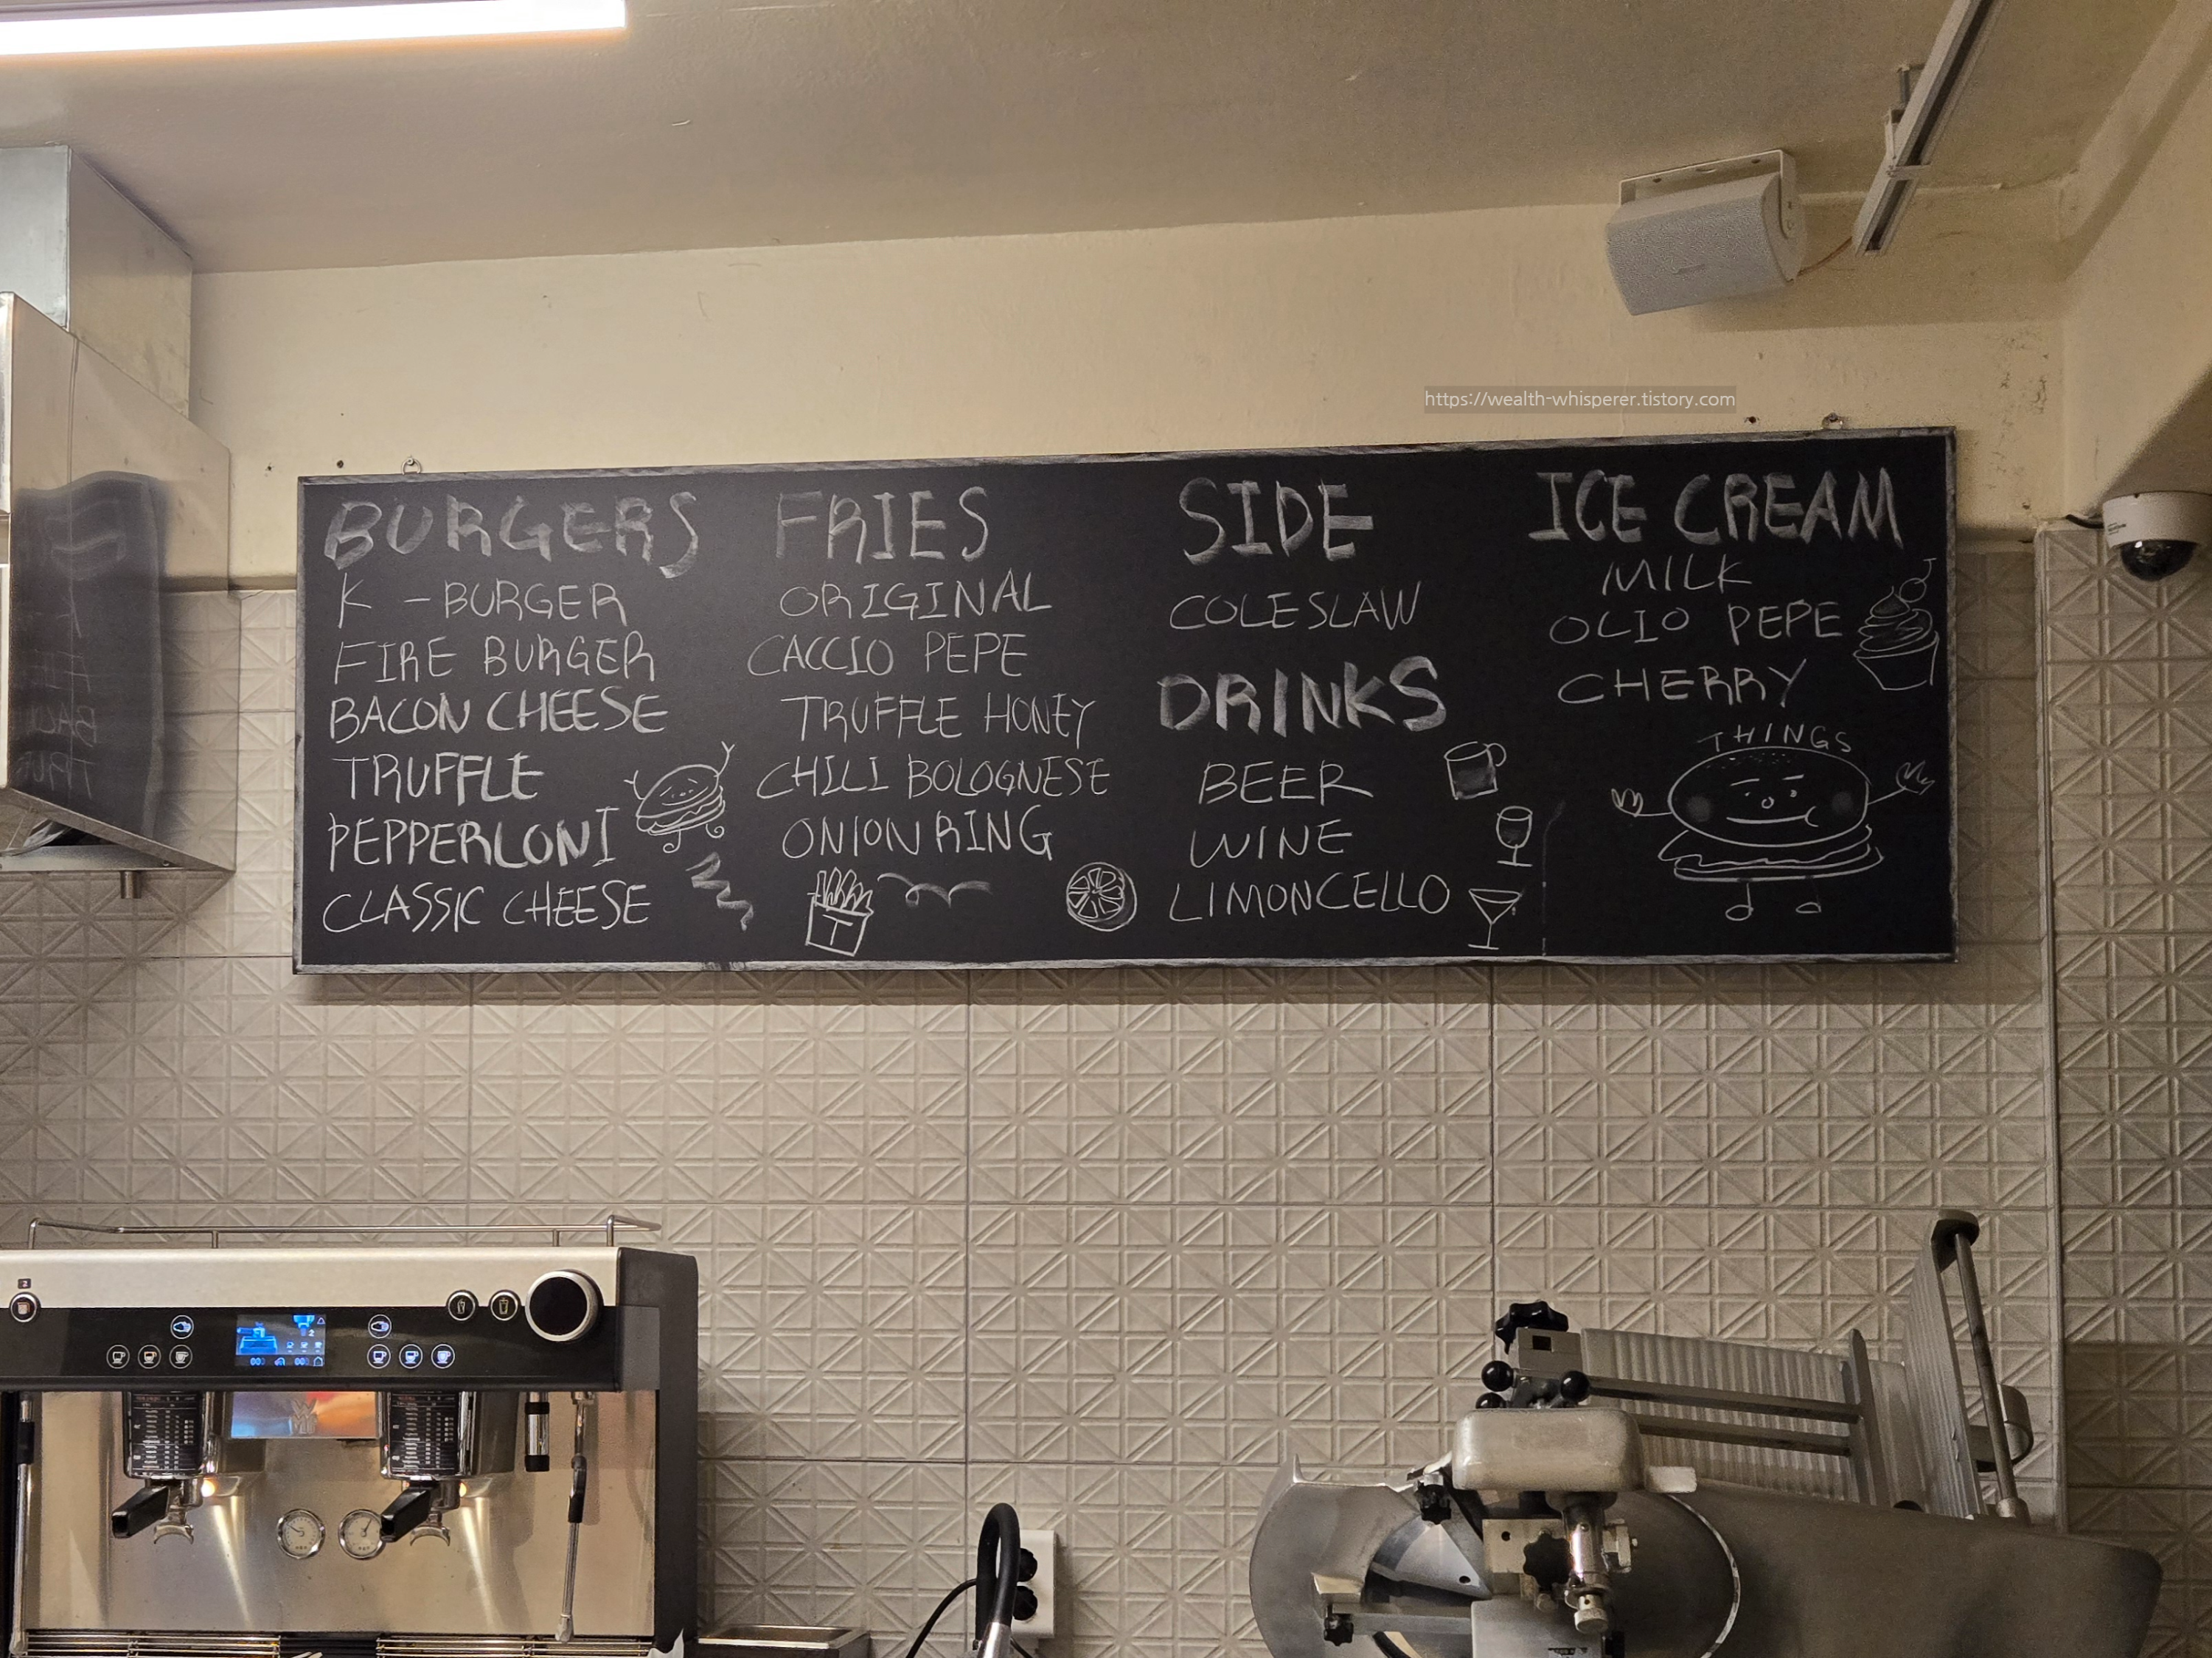 https://wealth-whisperer.tistory.com
BURGERS
K - BURGER
FIRE BURGER
BACON CHEESE
TRUFFLE
PEPPERLONI
CLASSIC CHEESE
FRIES
ORIGINAL
CACCIO PEPE
TRUFFLE HONEY
CHILI BOLOGNESE
ONION RING
T
SIDE
COLESLAW
DRINKS
BEER
WINE
LIMONCELLO
ICE CREAM
MILK
OLIO PEPE
CHERRY
THINGS